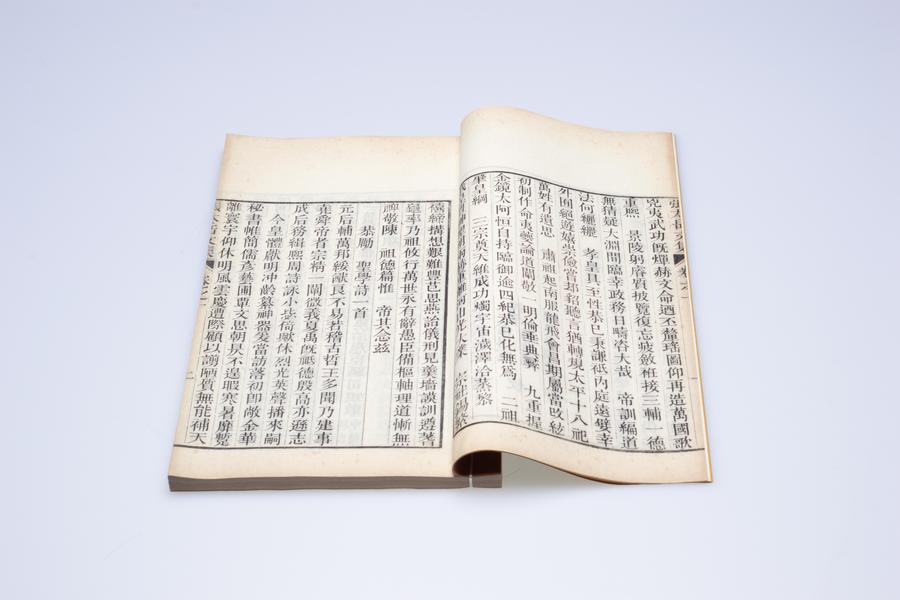 克夷武功既煇赫文命迺丕釐瑤圖仰再造萬國歌
重熙 景陵躬睿質披覽復忘疲斂衽接三輔一德
無猜疑大淵間臨幸政務日疇咨大哉 帝訓編道
法何纚纚 孝皇具至性恭巳秉謙祗內庭遠嬖幸
外囿絕遊嬉恐儉當邦貂聽言猶轉規太平十八祀
萬姓有遺思 肅祖起南服龍飛會昌期屬當敗紘
初制作命夷夔論道闡敬一明倫垂典彝 九重握
金鏡太阿恒自持臨御逾四紀恭巳化無為 二祖
肇皇綱 三宗奠天維成功燭宇宙濊澤洽蒸黎
締搆想艱難豐芑思燕詒儀刑見羹墻謨訓遵蓍
龜率乃祖攸行萬世永有辭愚臣備樞軸理道慚無
裨敬陳 祖德篇惟 帝其念茲
恭勵 聖學詩一首
元后輔萬邦綏猷良不易若稽古哲王多聞乃建事
在舜帝者宗精一闡微義夏禹既祗德殷高亦遜志
成后務緝熙周詩詠小毖猗歟休烈光英聲播來嗣
今皇體獻明冲齡纂神器爰當訪落初即敞金華
秘書帷簡儒彥藝圃覃文思朝昃不遑暇寒暑靡暫
離寰宇仰休明風雲慶遭際顧以譾陋質無能補天